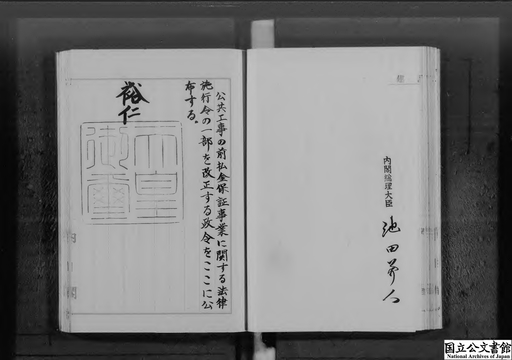 公共工事の前払金保証事業に関する法律
施行令の一部を改正する政令をここに公
布する。
裕仁
天皇
御璽
内閣総理大臣
池田勇人
国立公文書館
National Archives of Japan